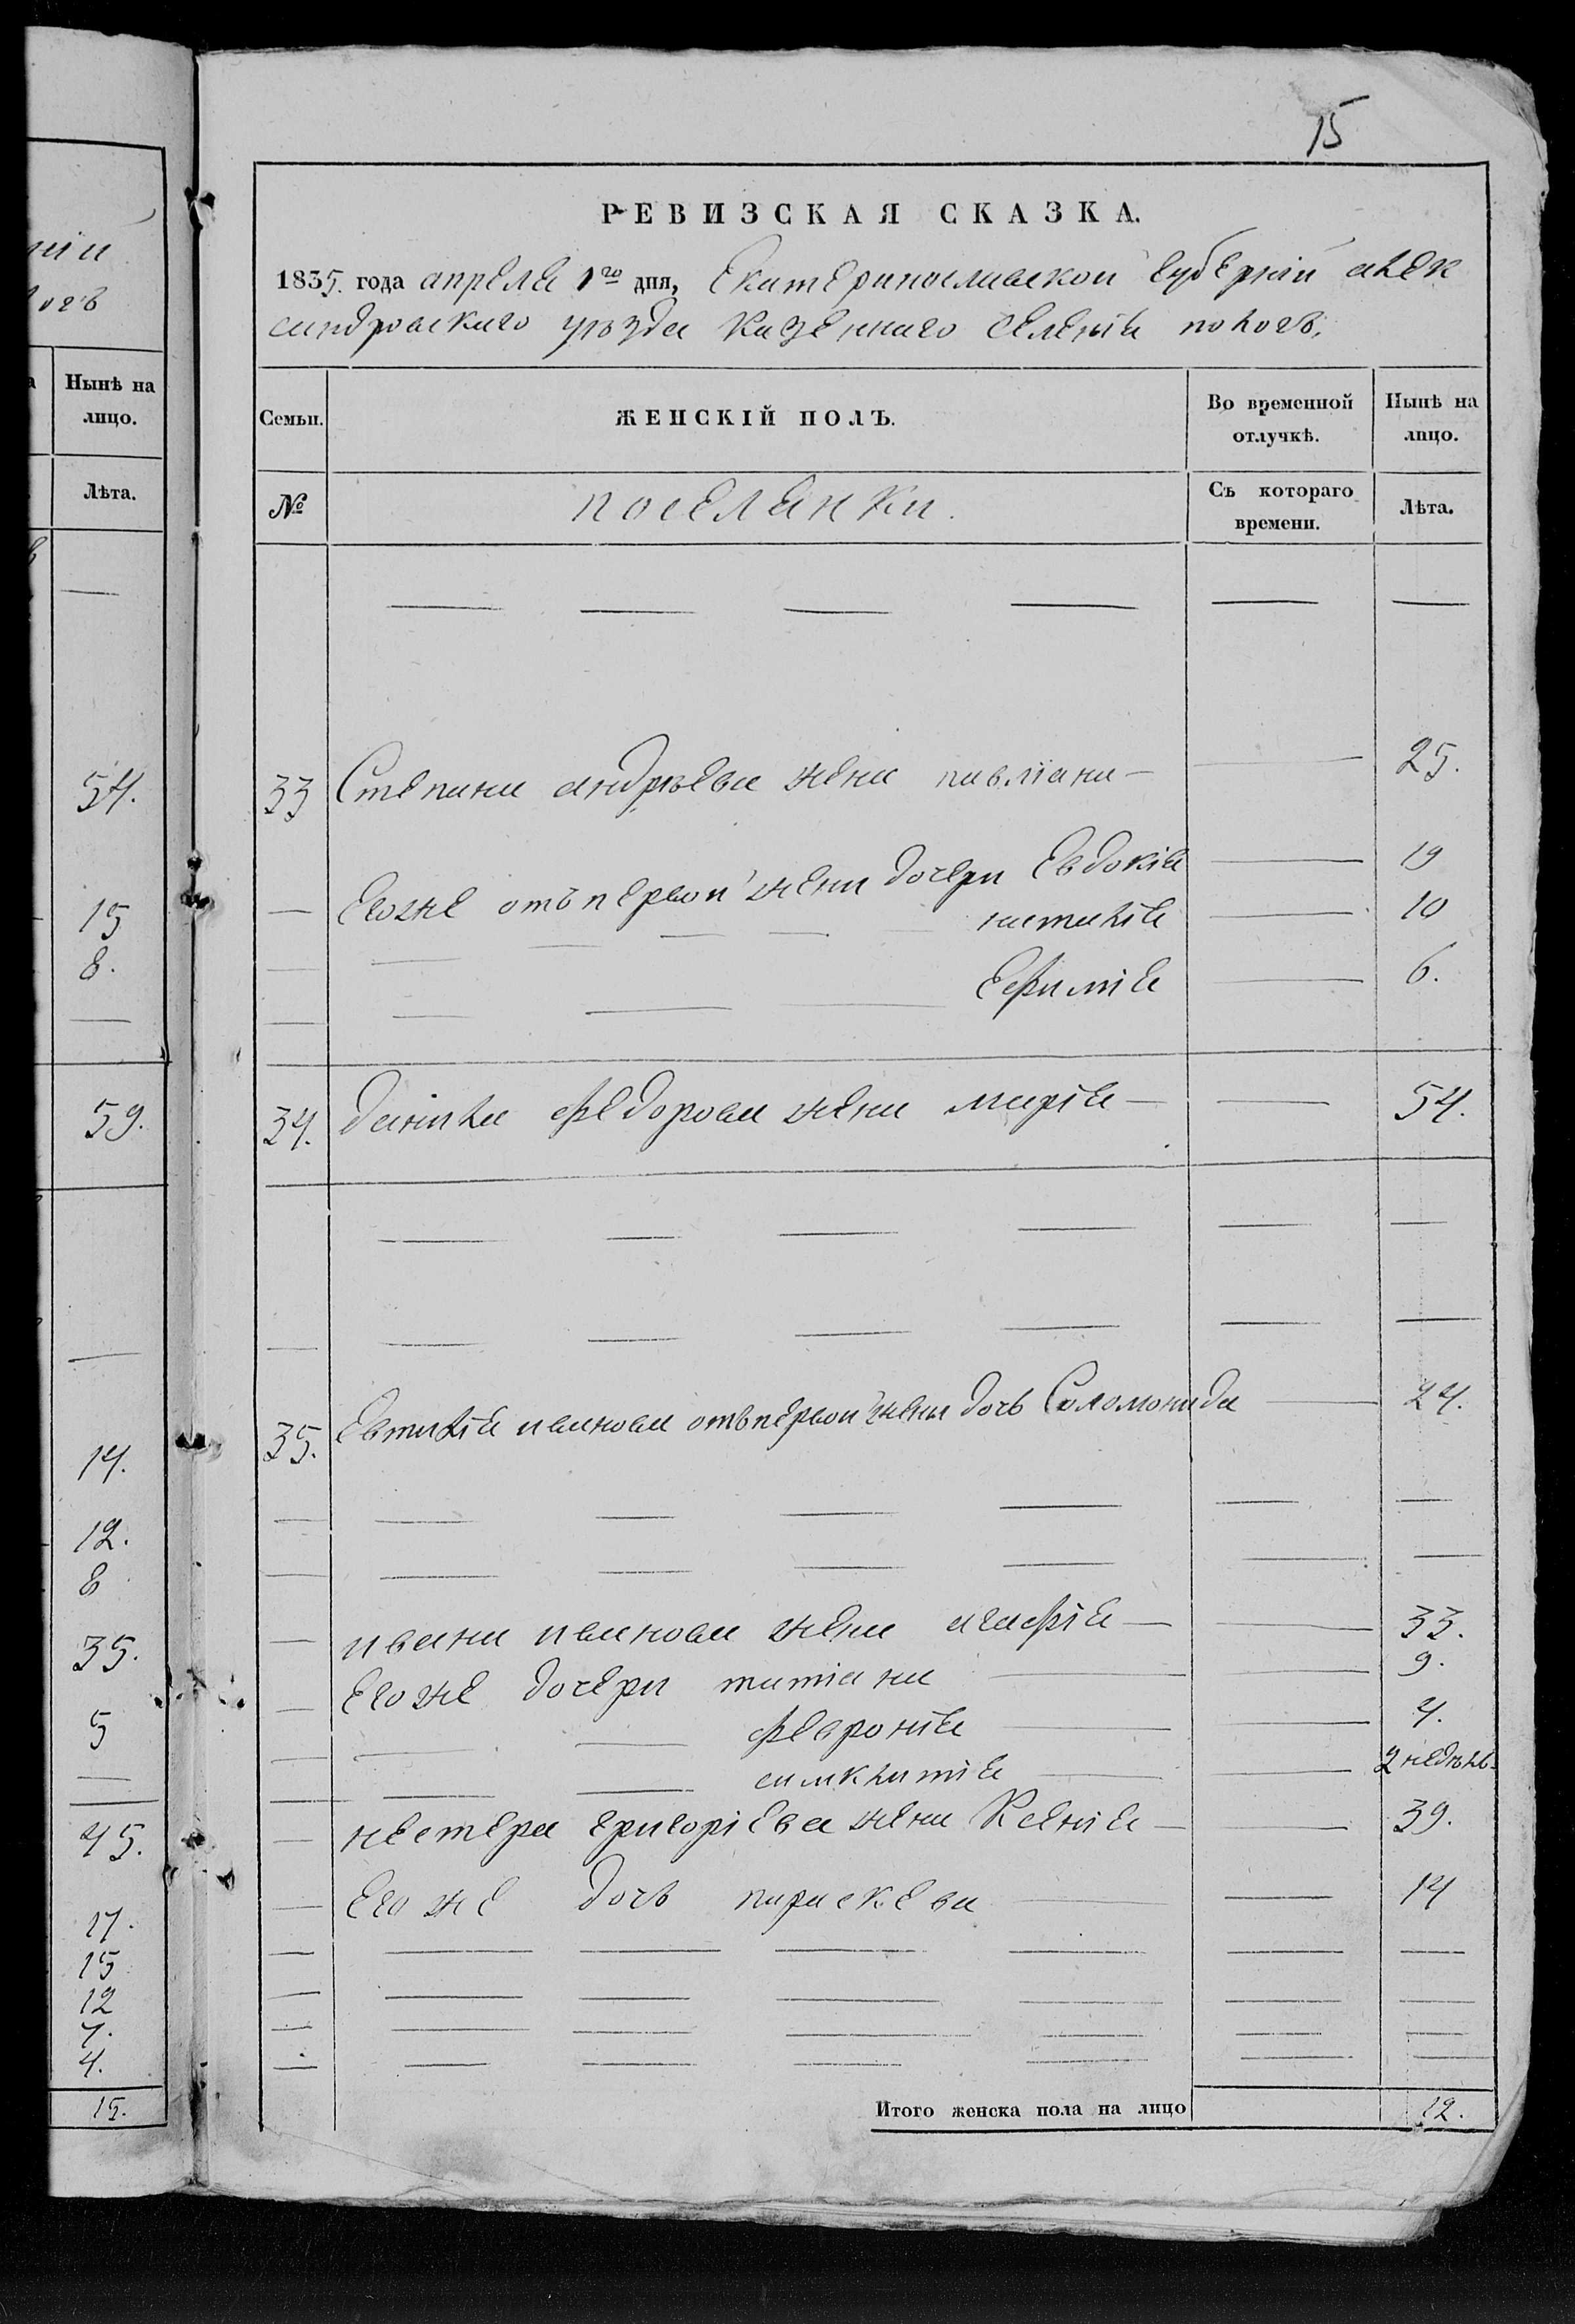 нiи
логъ
Нынѣ на
лицо.
Лѣта.
54.
15
8.
59.
14.
12.
8
35.
5
45.
17.
15
12
7.
4.
15.
15
РЕВИЗСКАЯ СКАЗКА.
1835. года апреля 1го дня, Екатеринославской губернiй алек
сандровскаго уѣзда казеннаго селенiя пологъ,
Семьи. ЖЕНСКІЙ ПОЛЪ. Во временной отлучкѣ. Нынѣ на лицо.
№ поселянки. Съ котораго времени. Лѣта.
33 Степана андрѣева жена павлiана 25.
Егоже отъ первой жены дочери Евдокiя 19
наталiя 10
Ефимiя 6.
34. данiила федорова жена марiя 54.
35. Евтихiя иванова отъ первой жены дочь Соломонида 24.
ивана иванова жена агафiя 33.
Егоже дочери татiана 9.
феврониiя 4.
синклитiя 2 недѣль
нестера григорiева жена Ксенiя 39.
Егоже дочь параскева 14
Итого женска пола на лицо 12.